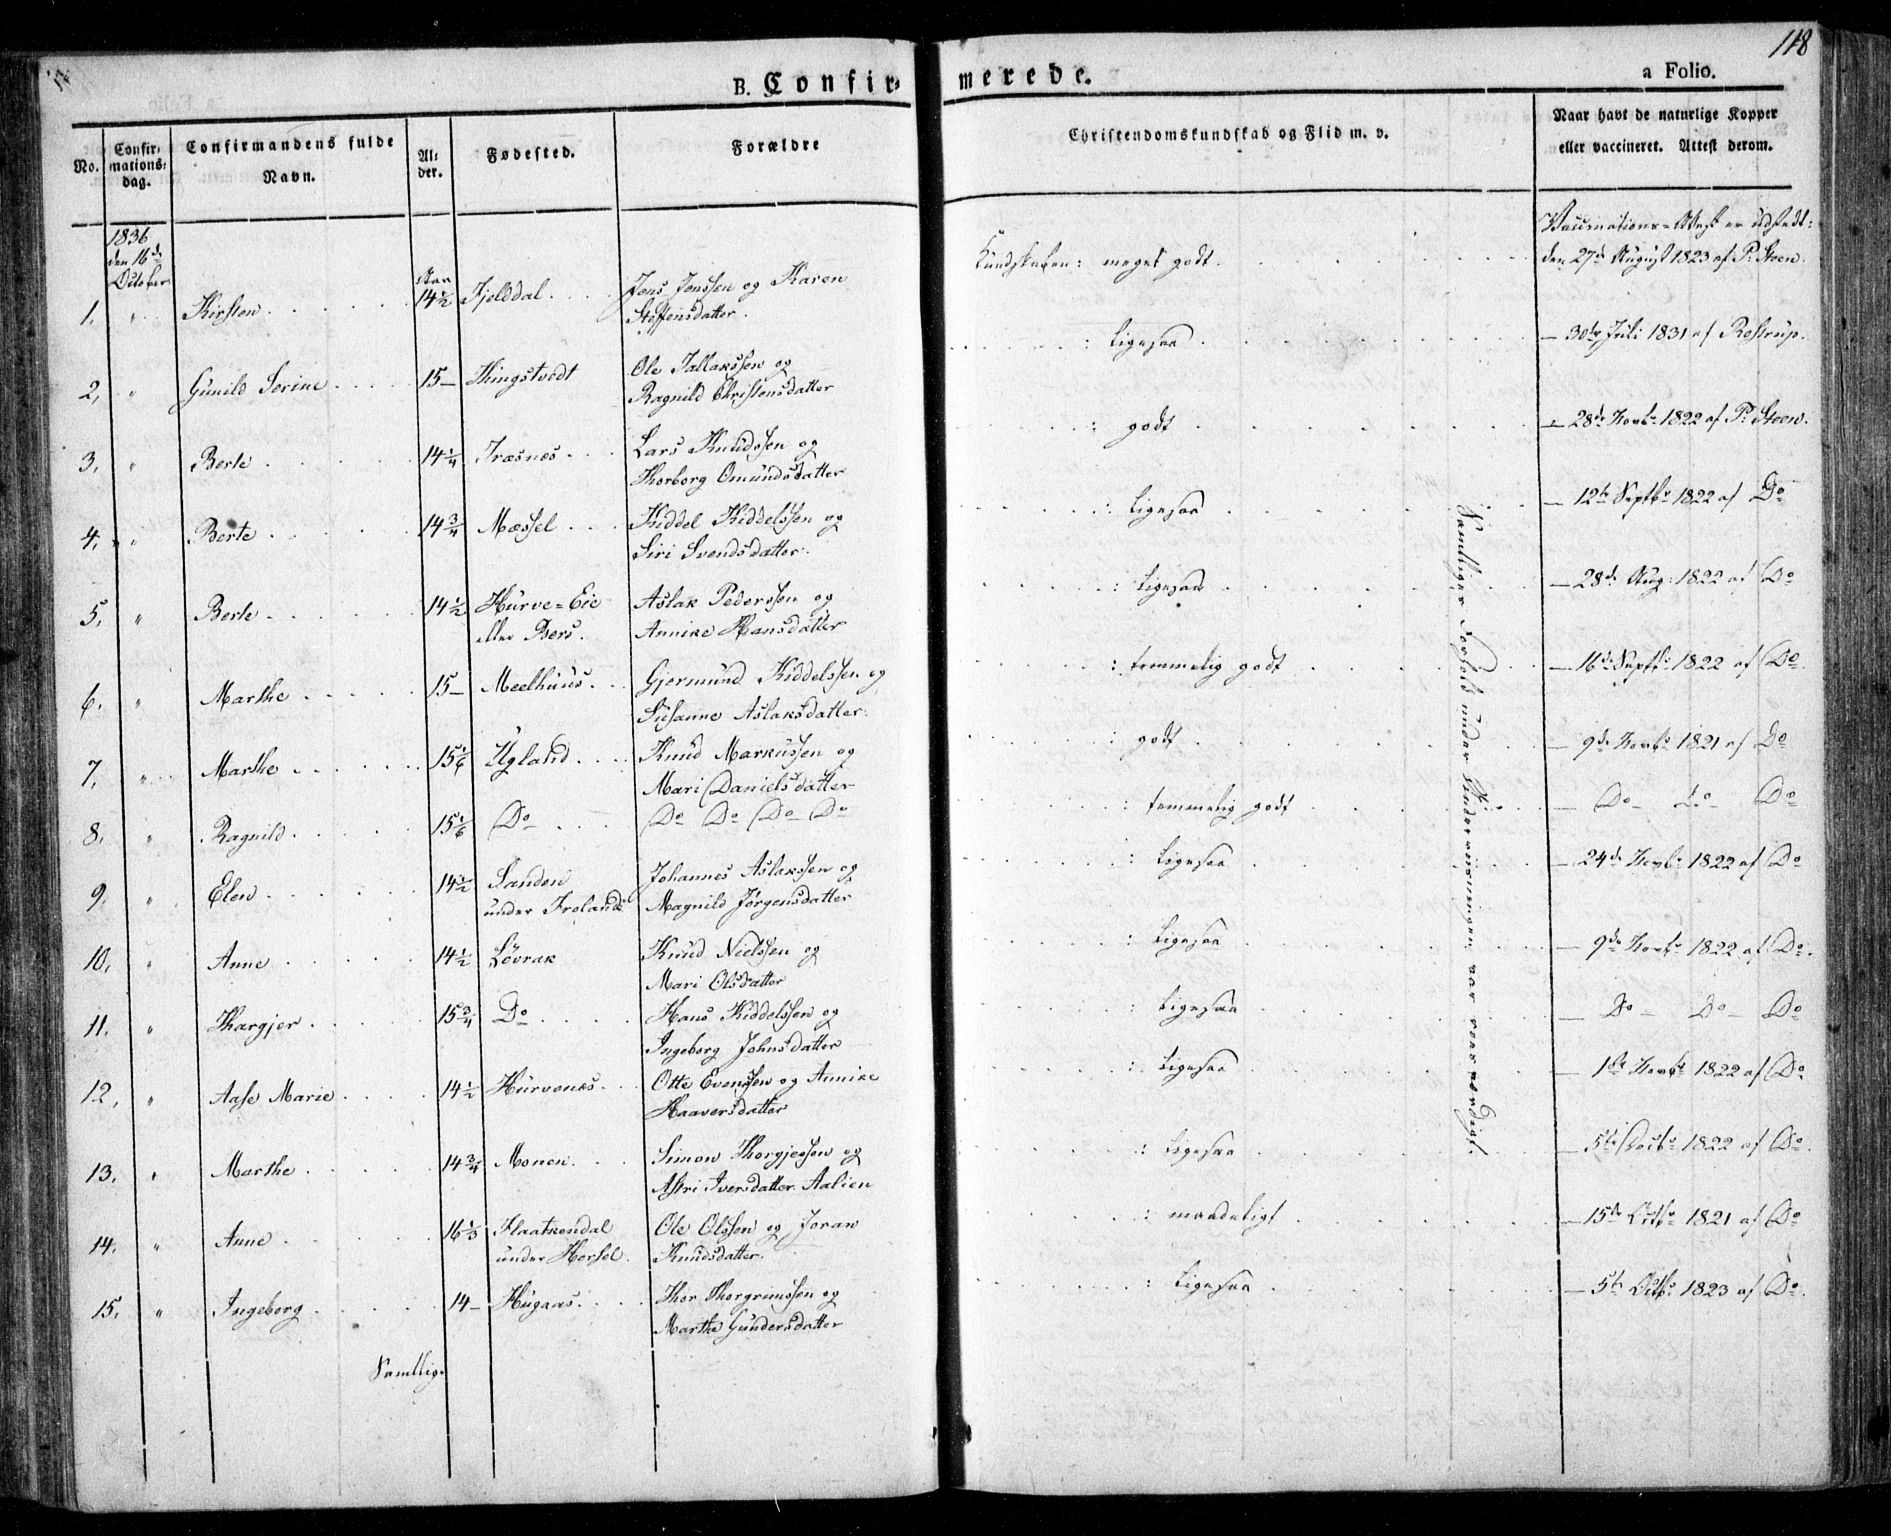 118
B. Confir- merede.
a Folio.
No.
Confir-
mations-
dag.
Confirmandens fulde
Navn.
Al-
der.
Fødested.
Forældre
Christendomskundskab og Flid m. v.
Naar havt de naturlige Kopper
eller vaccineret. Attest derom.
1836
den 16de
October
1. " Kirsten 14½ Fjelddal Jens Jenssen og Karen
Steffensdatter.
Kundskaben: meget godt.
Vaccinations-Attest er udstedt:
den 27de August 1823 af P. Steen.
2. " Gunild Serine 15 — Thingstvedt Ole Tallakssen og
Ragnild Christensdatter
: ligesaa
— 30te Juli 1831 af Rostrup.
3. " Berte 14¼ Træsnæs Lars Knudssen og
Thorborg Omundsdatter
: godt
— 28de Novbr 1822 af P. Steen.
4. " Berte 14¾ Mæssel Kiddel Kiddelssen og
Siri Svendsdatter.
: ligesaa
— 12te Septbr 1822 af Do
5. " Berte 14½ Hurve-Eie
eller Bers.
Aslak Pederssen og
Annike Hansdatter
: ligesaa
— 28de Aug: 1822 af Do
6. " Marthe 15 — Meelhuus Gjermund Kiddelssen og
Susanne Aslaksdatter.
: temmelig godt
— 16de Septbr 1822 af Do
7. " Marthe 15⅙ Ugland Knud Markussen og
Mari Danielsdatter
: godt
— 9de Novbr 1821 af Do
8. " Ragnild 15⅙ Do Do Do Do Do
: temmelig godt
— Do — Do Do
9. " Elen 14½ Sanden
under Froland
Johannes Aslakssen og
Magnild Jørgensdatter
: ligesaa
— 24de Novbr 1822 af Do
10. " Anne 14½ Løvrak Knud Nielssen og
Mari Olsdatter
: ligesaa
— 9de Novbr 1822 af Do
11. " Thargjer 15¾ Do Hans Kiddelssen og
Ingeborg Johnsdatter
: ligesaa
— Do — Do — Do
12. " Aase Marie 14½ Hurvenæs Otte Evenssen og Annike
Haaversdatter
: ligesaa
— 1ste Novbr 1822 af Do
13. " Marthe 14¾ Monen Simon Thorgjessen og
Astri Iversdatter Aalien
: ligesaa
— 5te Decbr 1822 af Do
14. " Anne 16⅓ Flaatkendal
under Hersel.
Ole Olssen og Joran
Knudsdatter.
: maadeligt
— 15de Octbr 1821 af Do
15. " Ingeborg 14 — Hugaas Thor Thorgrimssen og
Marthe Gundersdatter
: ligesaa
— 5te Octbr 1823 af Do
Samtlige
Samtliges Forhold under Underviisningen var roesværdigt.